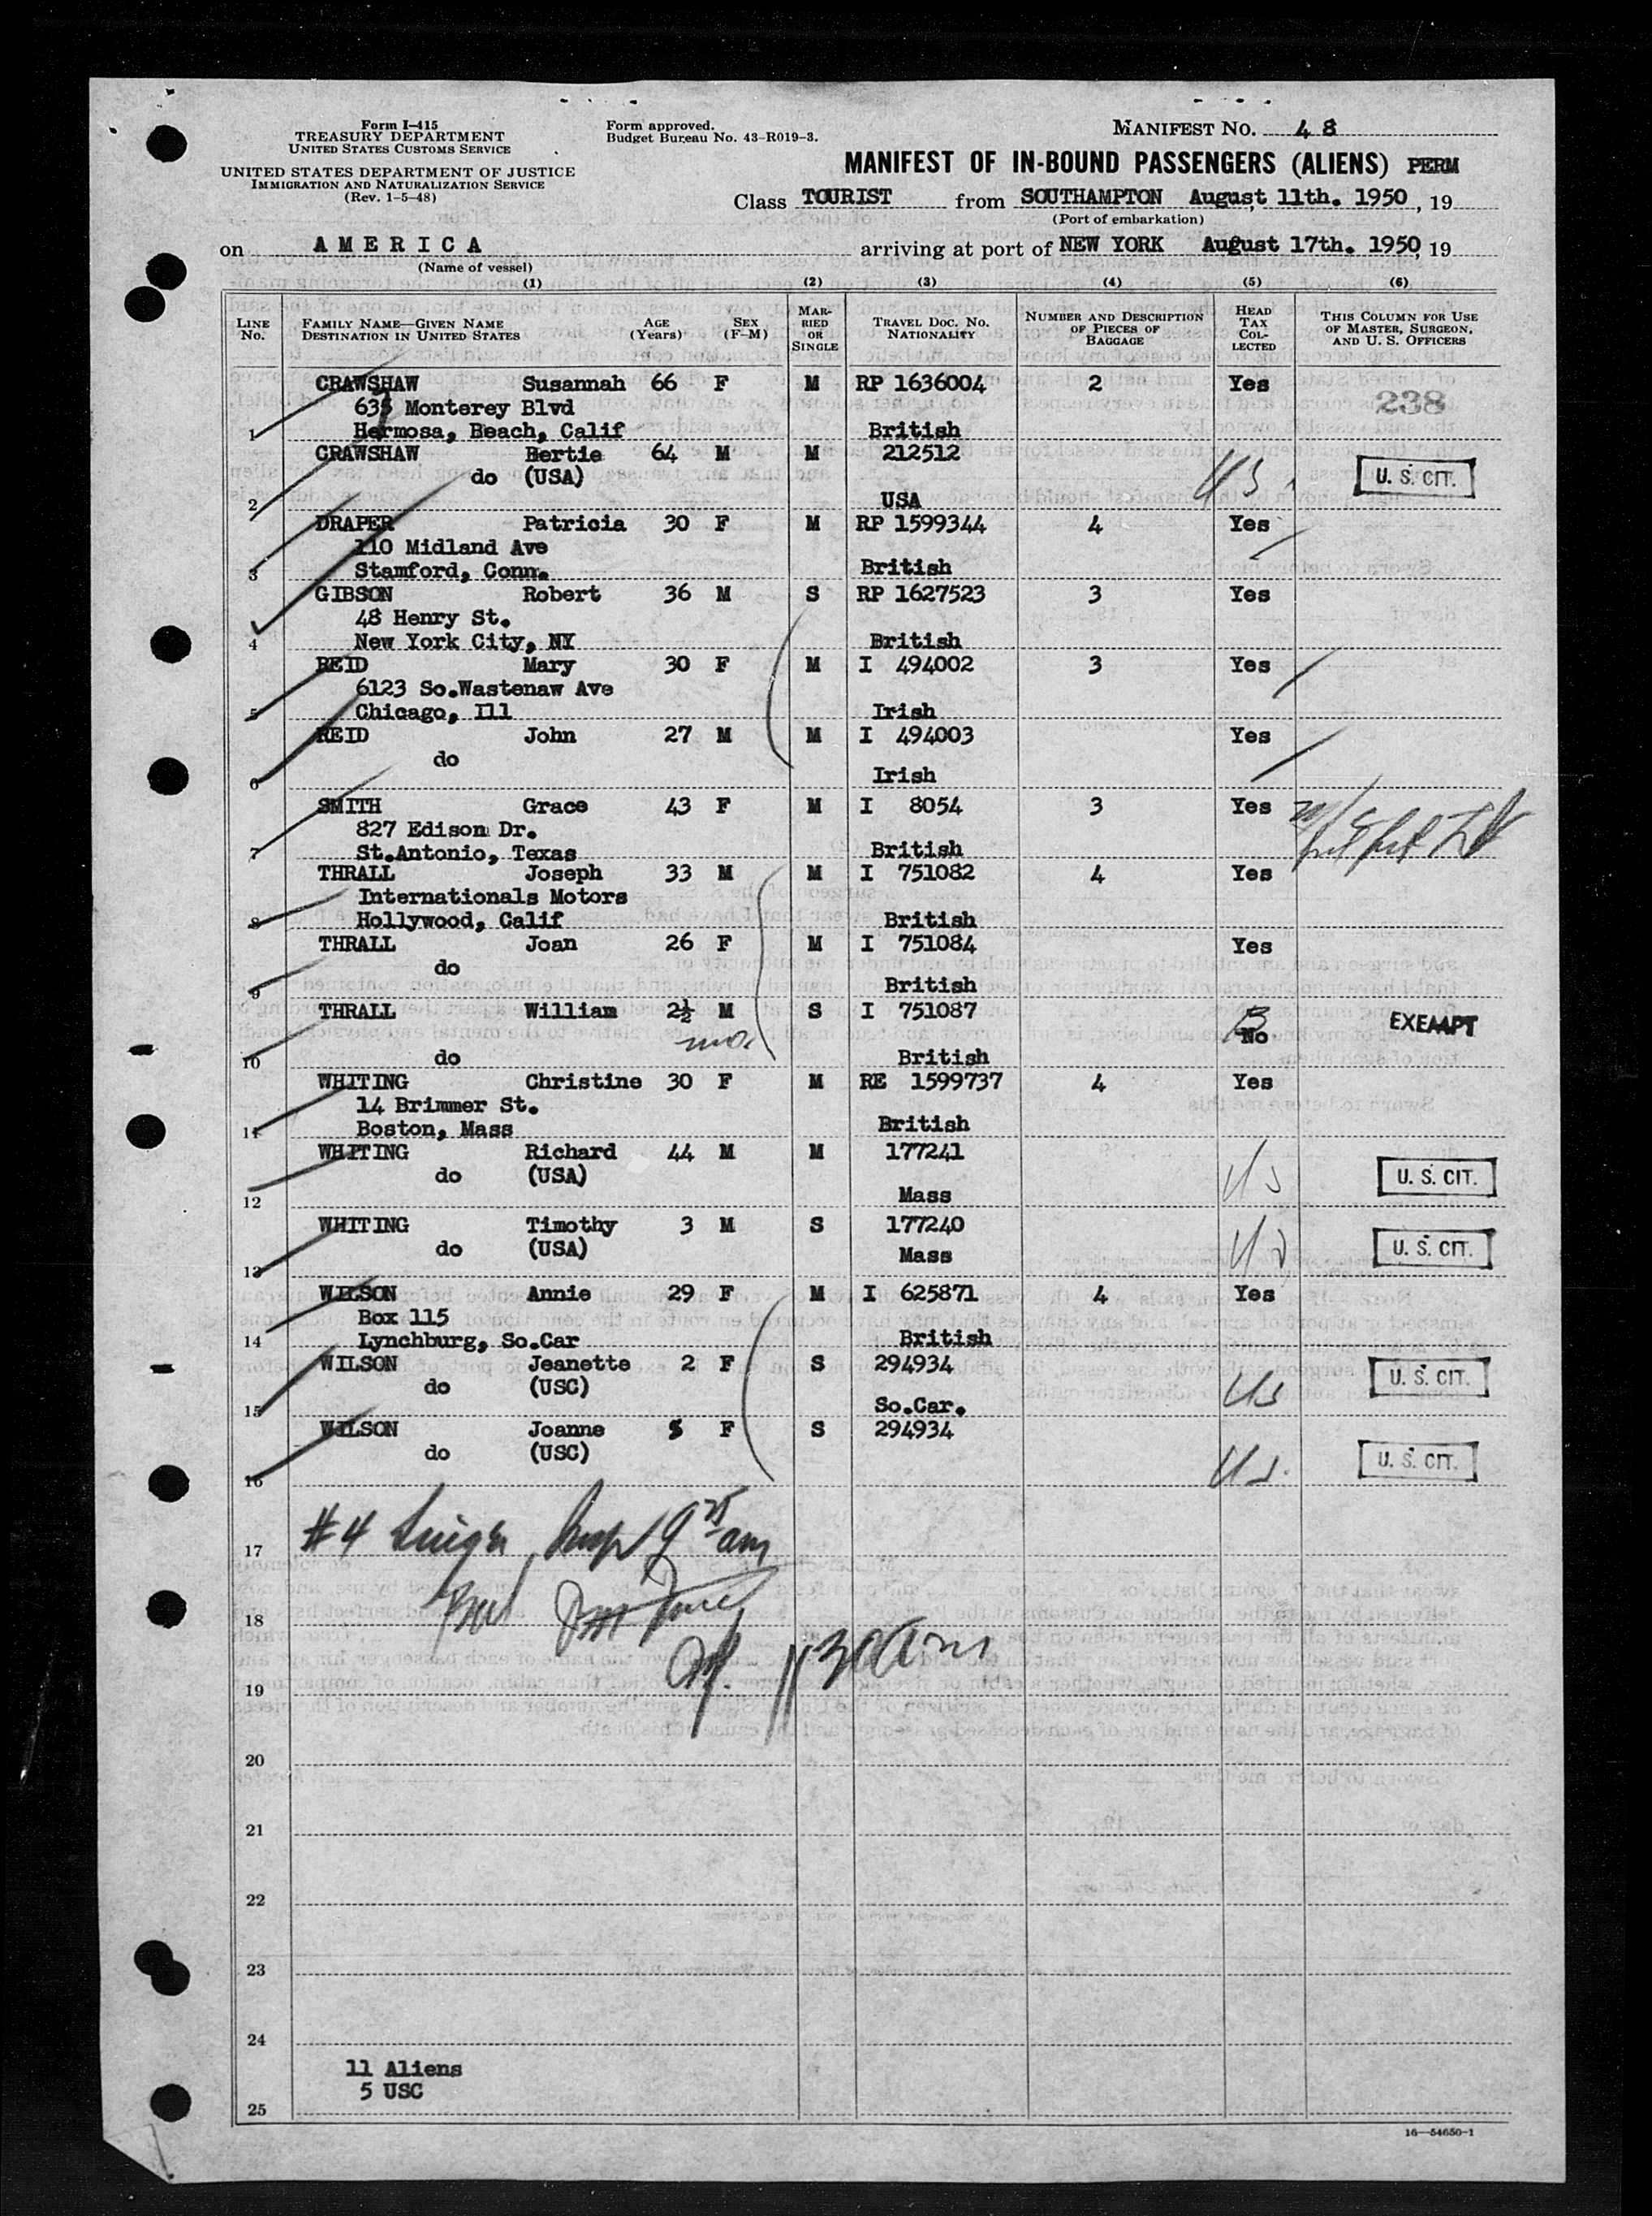 Form I-415
TREASURY DEPARTMENT
UNITED STATES CUSTOMS SERVICE
UNITED STATES DEPARTMENT OF JUSTICE
IMMIGRATION AND NATURALIZATION SERVICE
(Rev. 1-5-48)
Form approved.
Budget Bureau No. 43-R019-3.
MANIFEST NO. 48
MANIFEST OF IN-BOUND PASSENGERS (ALIENS) PERM
Class TOURIST from SOUTHAMPTON August 11th. 1950, 19
(Port of embarkation)
on AMERICA arriving at port of NEW YORK August 17th. 1950, 19
(Name of vessel)
(1) (2) (3) (4) (5) (6)
LINE No. FAMILY NAME—GIVEN NAME DESTINATION IN UNITED STATES AGE (Years) SEX (F-M) MARRIED OR SINGLE TRAVEL DOC. NO. NATIONALITY NUMBER AND DESCRIPTION OF PIECES OF BAGGAGE HEAD TAX COLLECTED THIS COLUMN FOR USE OF MASTER, SURGEON, AND U. S. OFFICERS
CRAWSHAW Susannah 66 F M RP 1636004 2 Yes
635 Monterey Blvd 238
1 Hermosa, Beach, Calif British
CRAWSHAW Bertie 64 M M 212512
do (USA) US U. S. CIT.
2 USA
DRAPER Patricia 30 F M RP 1599344 4 Yes
110 Midland Ave
3 Stamford, Conn. British
GIBSON Robert 36 M S RP 1627523 3 Yes
48 Henry St.
4 New York City, NY British
REID Mary 30 F M I 494002 3 Yes
6123 So.Wastenaw Ave
5 Chicago, Ill Irish
REID John 27 M M I 494003 Yes
do
6 Irish
SMITH Grace 43 F M I 8054 3 Yes
827 Edison Dr.
7 St.Antonio, Texas British
THRALL Joseph 33 M M I 751082 4 Yes
Internationals Motors
8 Hollywood, Calif British
THRALL Joan 26 F M I 751084 Yes
do
9 British
THRALL William 2½ M S I 751087
mo. No EXEMPT
10 do British
WHITING Christine 30 F M RE 1599737 4 Yes
14 Brimmer St.
11 Boston, Mass British
WHITING Richard 44 M M 177241
do (USA) US U. S. CIT.
12 Mass
WHITING Timothy 3 M S 177240
do (USA) US U. S. CIT.
13 Mass
WILSON Annie 29 F M I 625871 4 Yes
Box 115
14 Lynchburg, So.Car British
WILSON Jeanette 2 F S 294934
do (USC) US U. S. CIT.
15 So.Car.
WILSON Joanne 5 F S 294934
do (USC) US. U. S. CIT.
16
17 #4 am
18
19 1130am
20
21
22
23
24
11 Aliens
5 USC
25
16—54650-1